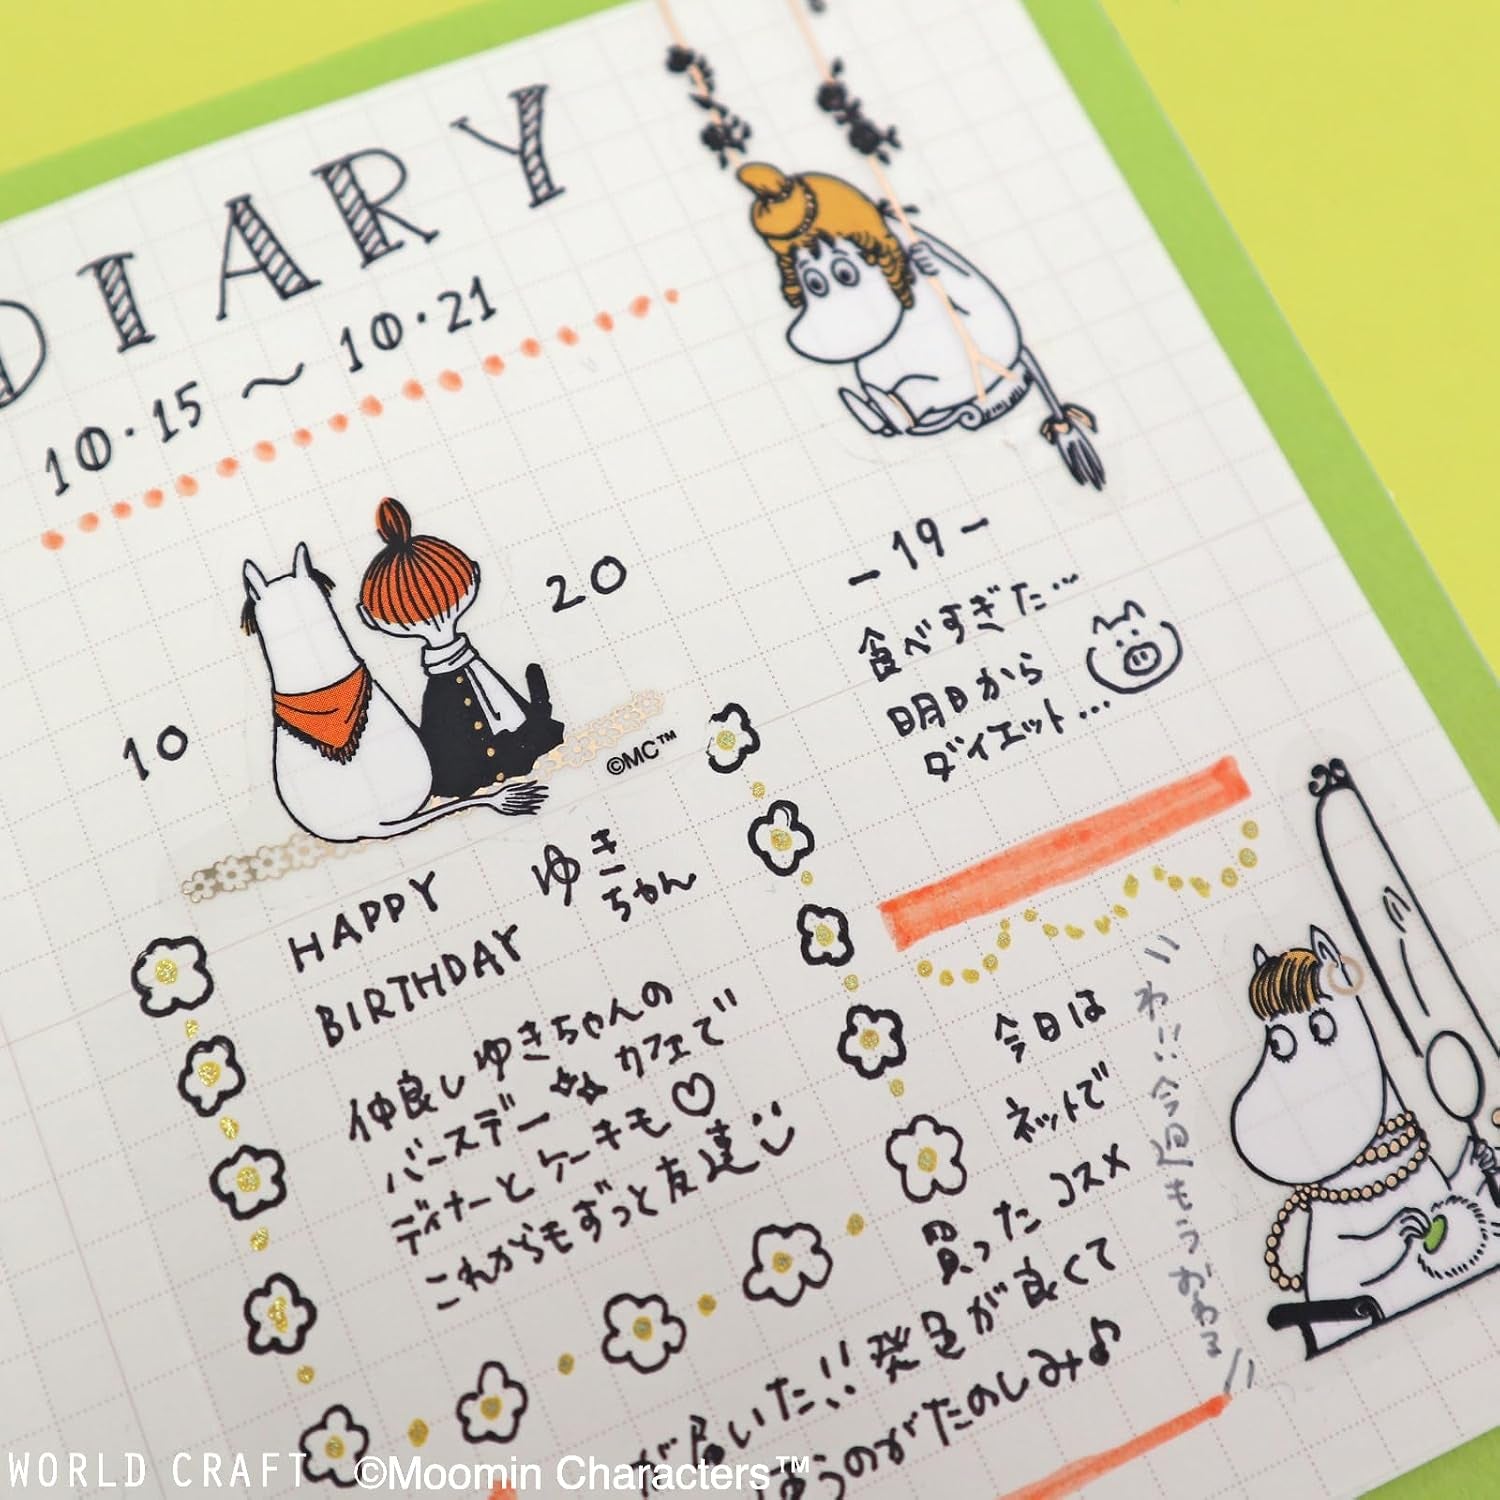 DIARY
10・15〜10・21
10
20
©MC™
HAPPY
BIRTHDAY
ゆき
ちゃん
仲良しゆきちゃんの
バースデー カフェで
ディナーとケーキも♡
これからもずっと友達
-19-
食べすぎた…
明日から
ダイエット…
今日は
ネットで
買ったコスメ
が届いた!!発色が良くて
うのがたのしみ♪
わ!!今週もうおわる
WORLD CRAFT ©Moomin Characters™